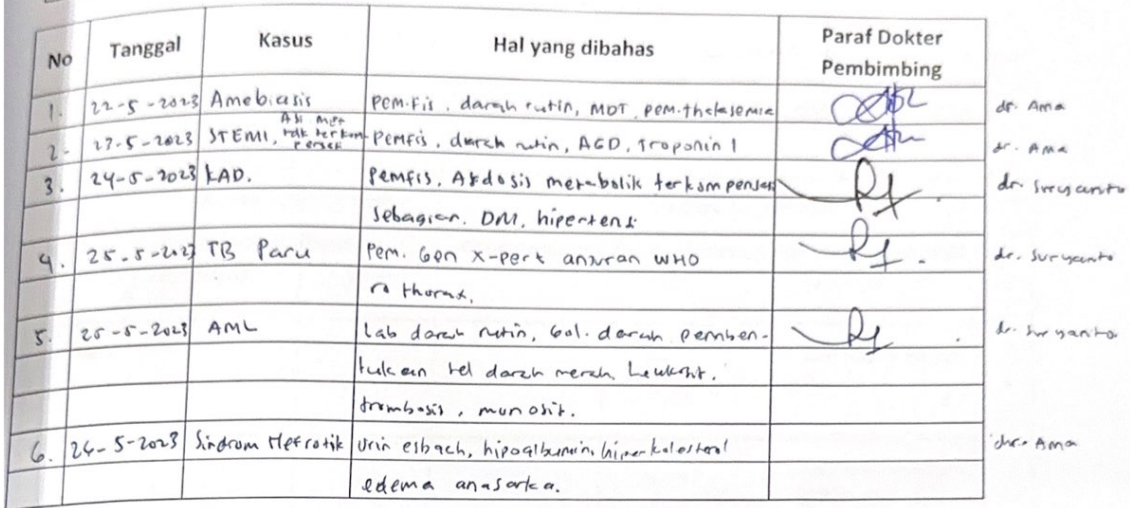 No Tanggal Kasus Hal yang dibahas Paraf Dokter Pembimbing
1. 22-5-2023 Amebiasis Pem.Fis, darah rutin, MDT, pem.thelasemia dr. Ama
2. 23-5-2023 STEMI, Asi met tdk terkompensasi Pemfis, darah rutin, AGD, Troponin I dr. Ama
3. 24-5-2023 KAD. Pemfis, Asidosis metabolik terkompensasi dr. Suryanto
sebagian. DM, hipertensi
4. 25-5-2023 TB Paru Pem. Gen X-pert anjuran WHO dr. Suryanto
ro thorax.
5. 25-5-2023 AML Lab darah rutin, Gol. darah pemben- dr. Suryanto
tukan sel darah merah, Leukosit,
trombosis, monosit.
6. 26-5-2023 Sindrom Nefrotik Urin esbach, hipoalbumin, hiperkolesterol dr. Ama
edema anasarka.